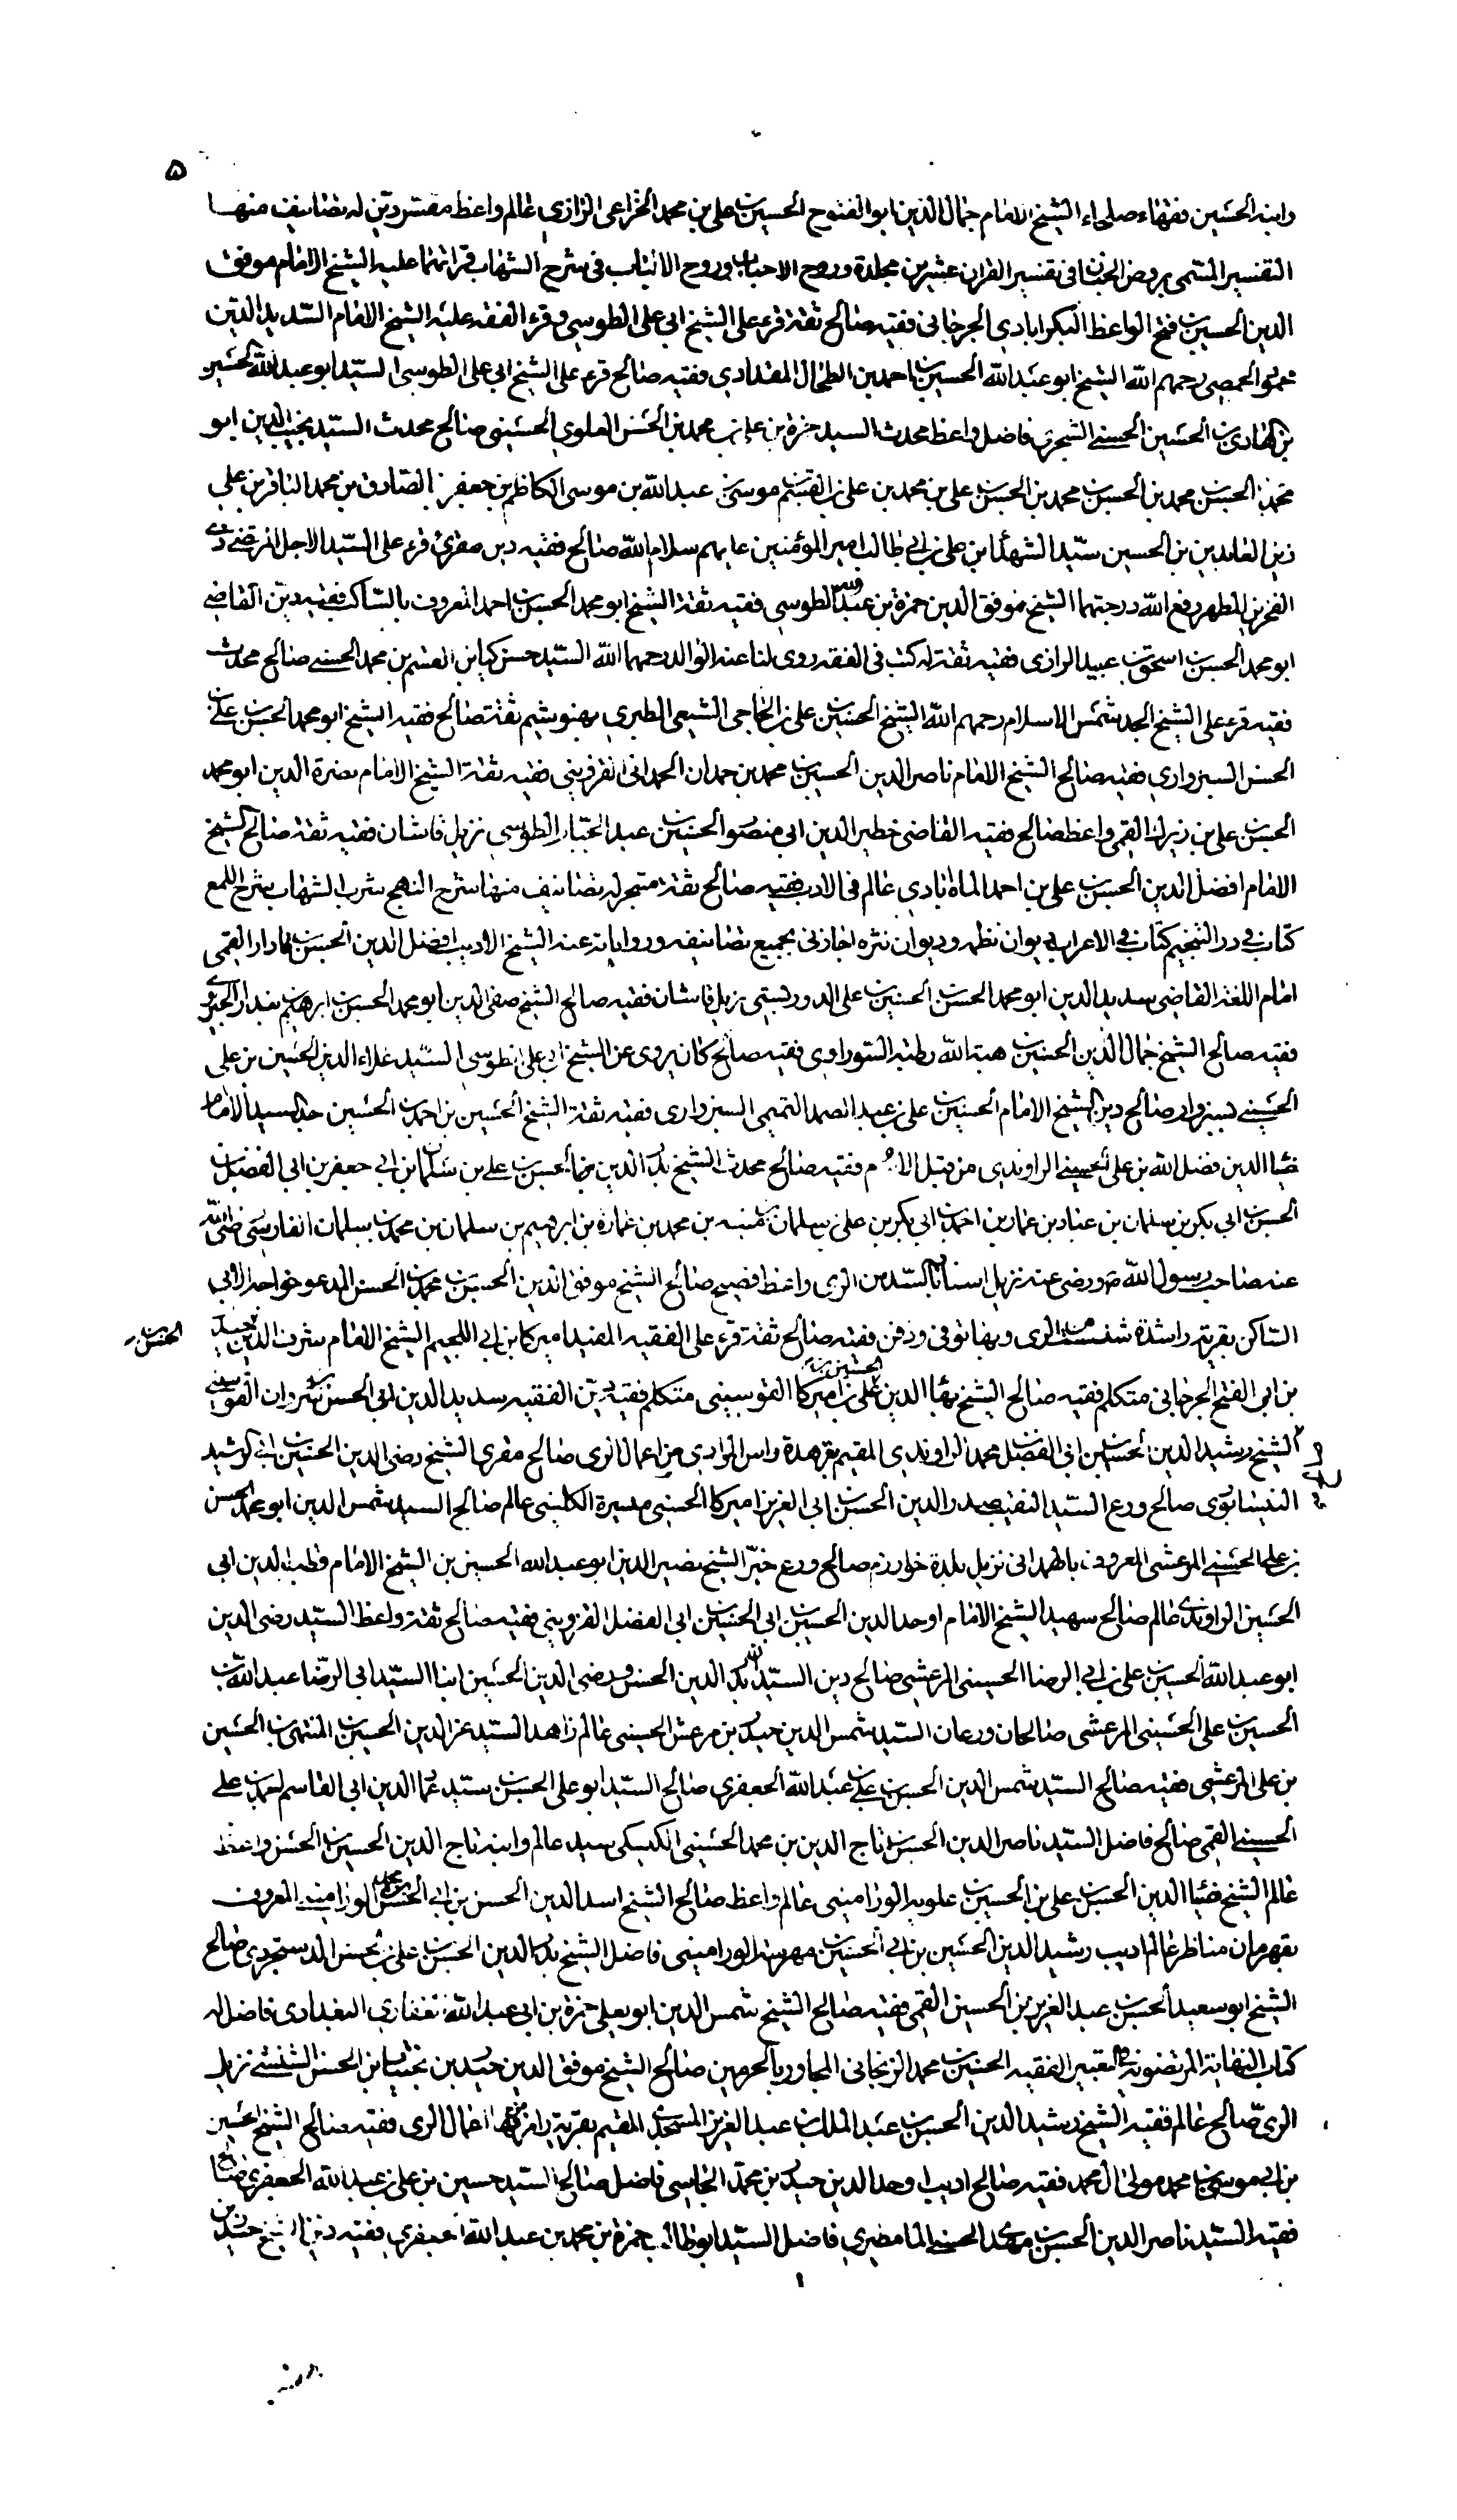 ۵
وابنه الحسين فقهاء صلحاء الشيخ الامام جمال الدين ابو الفتوح الحسين بن علي بن محمد الخزاعي الرازي عالم واعظ مفسر دين له تصانيف منها
التفسير المسمى بروض الجنان في تفسير القران عشرين مجلدة وروح الاحباب وروح الالباب في شرح الشهاب قراتهما عليه الشيخ الامام موفق
الدين الحسين بن فتح الواعظ البكرابادي الجرجاني فقيه صالح ثقة قرء على الشيخ ابي علي الطوسي وقرء الفقه عليه الشيخ الامام السديد الدين
محمود الحمصي رحمهم الله الشيخ ابو عبد الله الحسين بن احمد بن الطحال المقدادي فقيه صالح قرء على الشيخ ابي علي الطوسي السيد ابو عبد الله الحسين
بن الهادي بن الحسين الحسني الشجري فاضل واعظ محدث السيد حمزة بن علي بن محمد بن الحسن العلوي الحسيني صالح محدث السيد نجيب الدين ابو
محمد الحسن بن محمد بن الحسن بن محمد بن الحسن بن علي بن محمد بن علي بن القسم بن موسى بن عبد الله بن موسى الكاظم بن جعفر الصادق بن محمد الباقر بن علي
زين العابدين بن الحسين سيد الشهدا بن علي بن ابي طالب امير المؤمنين عليهم سلام الله صالح فقيه دين مقرئ قرء على السيد الاجل المرتضى ذي
الفخرين المطهر رفع الله درجتهما الشيخ موفق الدين حمزة بن عبد الله الطوسي فقيه ثقة الشيخ ابو محمد الحسن بن احمد المعروف بالساكت فقيه دين القاضي
ابو محمد الحسن بن اسحق بن عبيد الرازي فقيه ثقة له كتب في الفقه روى لنا عنه الوالد رحمهما الله السيد حسن كيا بن القسم بن محمد الحسني صالح محدث
فقيه قرء على الشيخ الجد شمس الاسلام رحمهم الله الشيخ الحسين بن علي بن الحاجي الشيعي الطبري بهنوشيم ثقة صالح فقيه الشيخ ابو محمد الحسن بن علي بن
الحسن السبزواري فقيه صالح الشيخ الامام ناصر الدين الحسين بن محمد بن حمدان الحمداني القزويني فقيه ثقة الشيخ الامام نصرة الدين ابو محمد
الحسن بن علي بن زيرك القمي واعظ صالح فقيه القاضي خطير الدين ابي منصور الحسين بن عبد الجبار الطوسي نزيل قاشان فقيه ثقة صالح الشيخ
الامام افضل الدين الحسن بن علي بن احمد الماه ابادي عالم في الادب فقيه صالح ثقة متبحر له تصانيف منها شرح النهج شرح الشهاب شرح اللمع
كتاب في رد التنجيم كتاب في الاعراب ديوان نظمه وديوان نثره اجازني بجميع تصانيفه ورواياته عنه الشيخ الاديب افضل الدين الحسن بن فادار القمي
امام اللغة القاضي سديد الدين ابو محمد الحسن بن الحسين بن علي الدوريستي نزيل قاشان فقيه صالح الشيخ صفي الدين ابو محمد الحسن بن ابرهيم بندار
فقيه صالح الشيخ جمال الدين الحسين بن هبة الله بن رطبة السوراوي فقيه صالح كان يروي عن الشيخ ابي علي الطوسي السيد علاء الدين الحسين بن علي
الحسيني سبزوار صالح دين الشيخ الامام الحسين بن علي بن عبد الصمد التميمي السبزواري فقيه ثقة الشيخ الحسين بن احمد بن الحسين جد السيد الامام
ضيا الدين فضل الله بن علي الحسيني الراوندي من قبل الام فقيه صالح محدث الشيخ بدر الدين الحسن بن علي بن سلمان بن ابي جعفر بن ابي الفضل بن
الحسن بن ابي بكر بن سلمان بن عباد بن عمار بن احمد بن ابي بكر بن علي بن سلمان بن منبه بن محمد بن عمارة بن ابرهيم بن سلمان بن محمد بن سلمان الفارسي رضي الله
عنه صاحب رسول الله ص ورضي عنه نزيل اسناباد السد من الري واعظ فصيح صالح الشيخ موفق الدين الحسين بن محمد بن الحسن المدعو خواجه الابي
الساكن بقرية راشدة شنست من الري وبها توفي ودفن فقيه صالح ثقة قرء على الفقيه المفيد اميركا بن ابي اللجيم الشيخ الامام شرف الدين
الحسن بن
بن ابي الفتح الجرجاني متكلم فقيه صالح الشيخ بهاء الدين علي بن اميركا القوسيني متكلم فقيه دين الفقيه سديد الدين ابي الحسن شروان القوسيني
الحسين بن
الشيخ رشيد الدين الحسين بن ابي الفضل بن محمد الراوندي المقيم بقوهدة راس الوادي من اعمال الري صالح مقري الشيخ رضي الدين الحسين بن ابي الرشيد
النيشابوري صالح ورع السيد النقيب صدر الدين الحسن بن ابي العزيز اميركا الحسيني ميسرة الكليني عالم صالح السيد شمس الدين ابو محمد الحسن
بن علي الحسيني المرعشي المعروف بالهمداني نزيل بلدة خوارزم صالح ورع خير الشيخ نصير الدين ابو عبد الله الحسين بن الشيخ الامام قطب الدين ابي
الحسين الراوندي عالم صالح شهيد الشيخ الامام اوحد الدين الحسين بن ابي الحسين بن ابي الفضل القزويني فقيه صالح ثقة واعظ السيد رضي الدين
ابو عبد الله الحسين بن علي بن ابي الرضا الحسيني المرعشي صالح دين السيدان بدر الدين الحسن ورضي الدين الحسين ابنا السيد ابي الرضا عبد الله بن
الحسين بن علي الحسيني المرعشي صالحان ورعان السيد شمس الدين حيدر بن مرعش الحسيني عالم زاهد السيد عز الدين الحسين بن المنتهى بن الحسين
بن علي المرعشي فقيه صالح السيد شمس الدين الحسن بن علي بن عبد الله الجعفري صالح السيد ابو علي الحسن بن سيد عماد الدين ابي القاسم احمد بن علي
الحسيني القمي صالح فاضل السيد ناصر الدين الحسن بن تاج الدين بن محمد الحسيني الكيسكي سيد عالم وابنه تاج الدين الحسين بن الحسن واعظ
عالم الشيخ ضيا الدين الحسن بن علي بن الحسين بن علويه الوراميني عالم واعظ صالح الشيخ اسد الدين الحسن بن ابي الحسن بن محمد الوراميني المعروف
بقهرمان مناظر عالم اديب رشيد الدين الحسين بن ابي الحسين بن مهرسة الوراميني فاضل الشيخ بدر الدين الحسن بن علي بن الحسن الدستجردي صالح
الشيخ ابو سعيد الحسن بن عبد العزيز بن الحسين القمي فقيه صالح الشيخ شمس الدين ابو يعلى حمزة بن ابي عبد الله الغفاري البغدادي فاضل له
كتاب التعبير الفقيه الحسين بن محمد الزنجاني المجاور بالحرمين صالح الشيخ موفق الدين حيدر بن بختيار بن الحسن الشنشني نزيل
الري صالح عالم فقيه الشيخ رشيد الدين الحسن بن عبد الملك بن عبد العزيز المقيم بقرية اعمال الري فقيه صالح الشيخ الحسين
بن ابي موسى بن محمد مولى ال محمد فقيه صالح اديب اوحد الدين حيدر بن محمد الجاسبي فاضل صالح السيد حسين بن علي بن عبد الله الجعفري صالح
فقيه السيد ناصر الدين الحسن بن مهدي الحسني المامطيري فاضل السيد ابو طالب حمزة بن محمد بن عبد الله الجعفري فقيه دين الشيخ حيدر بن